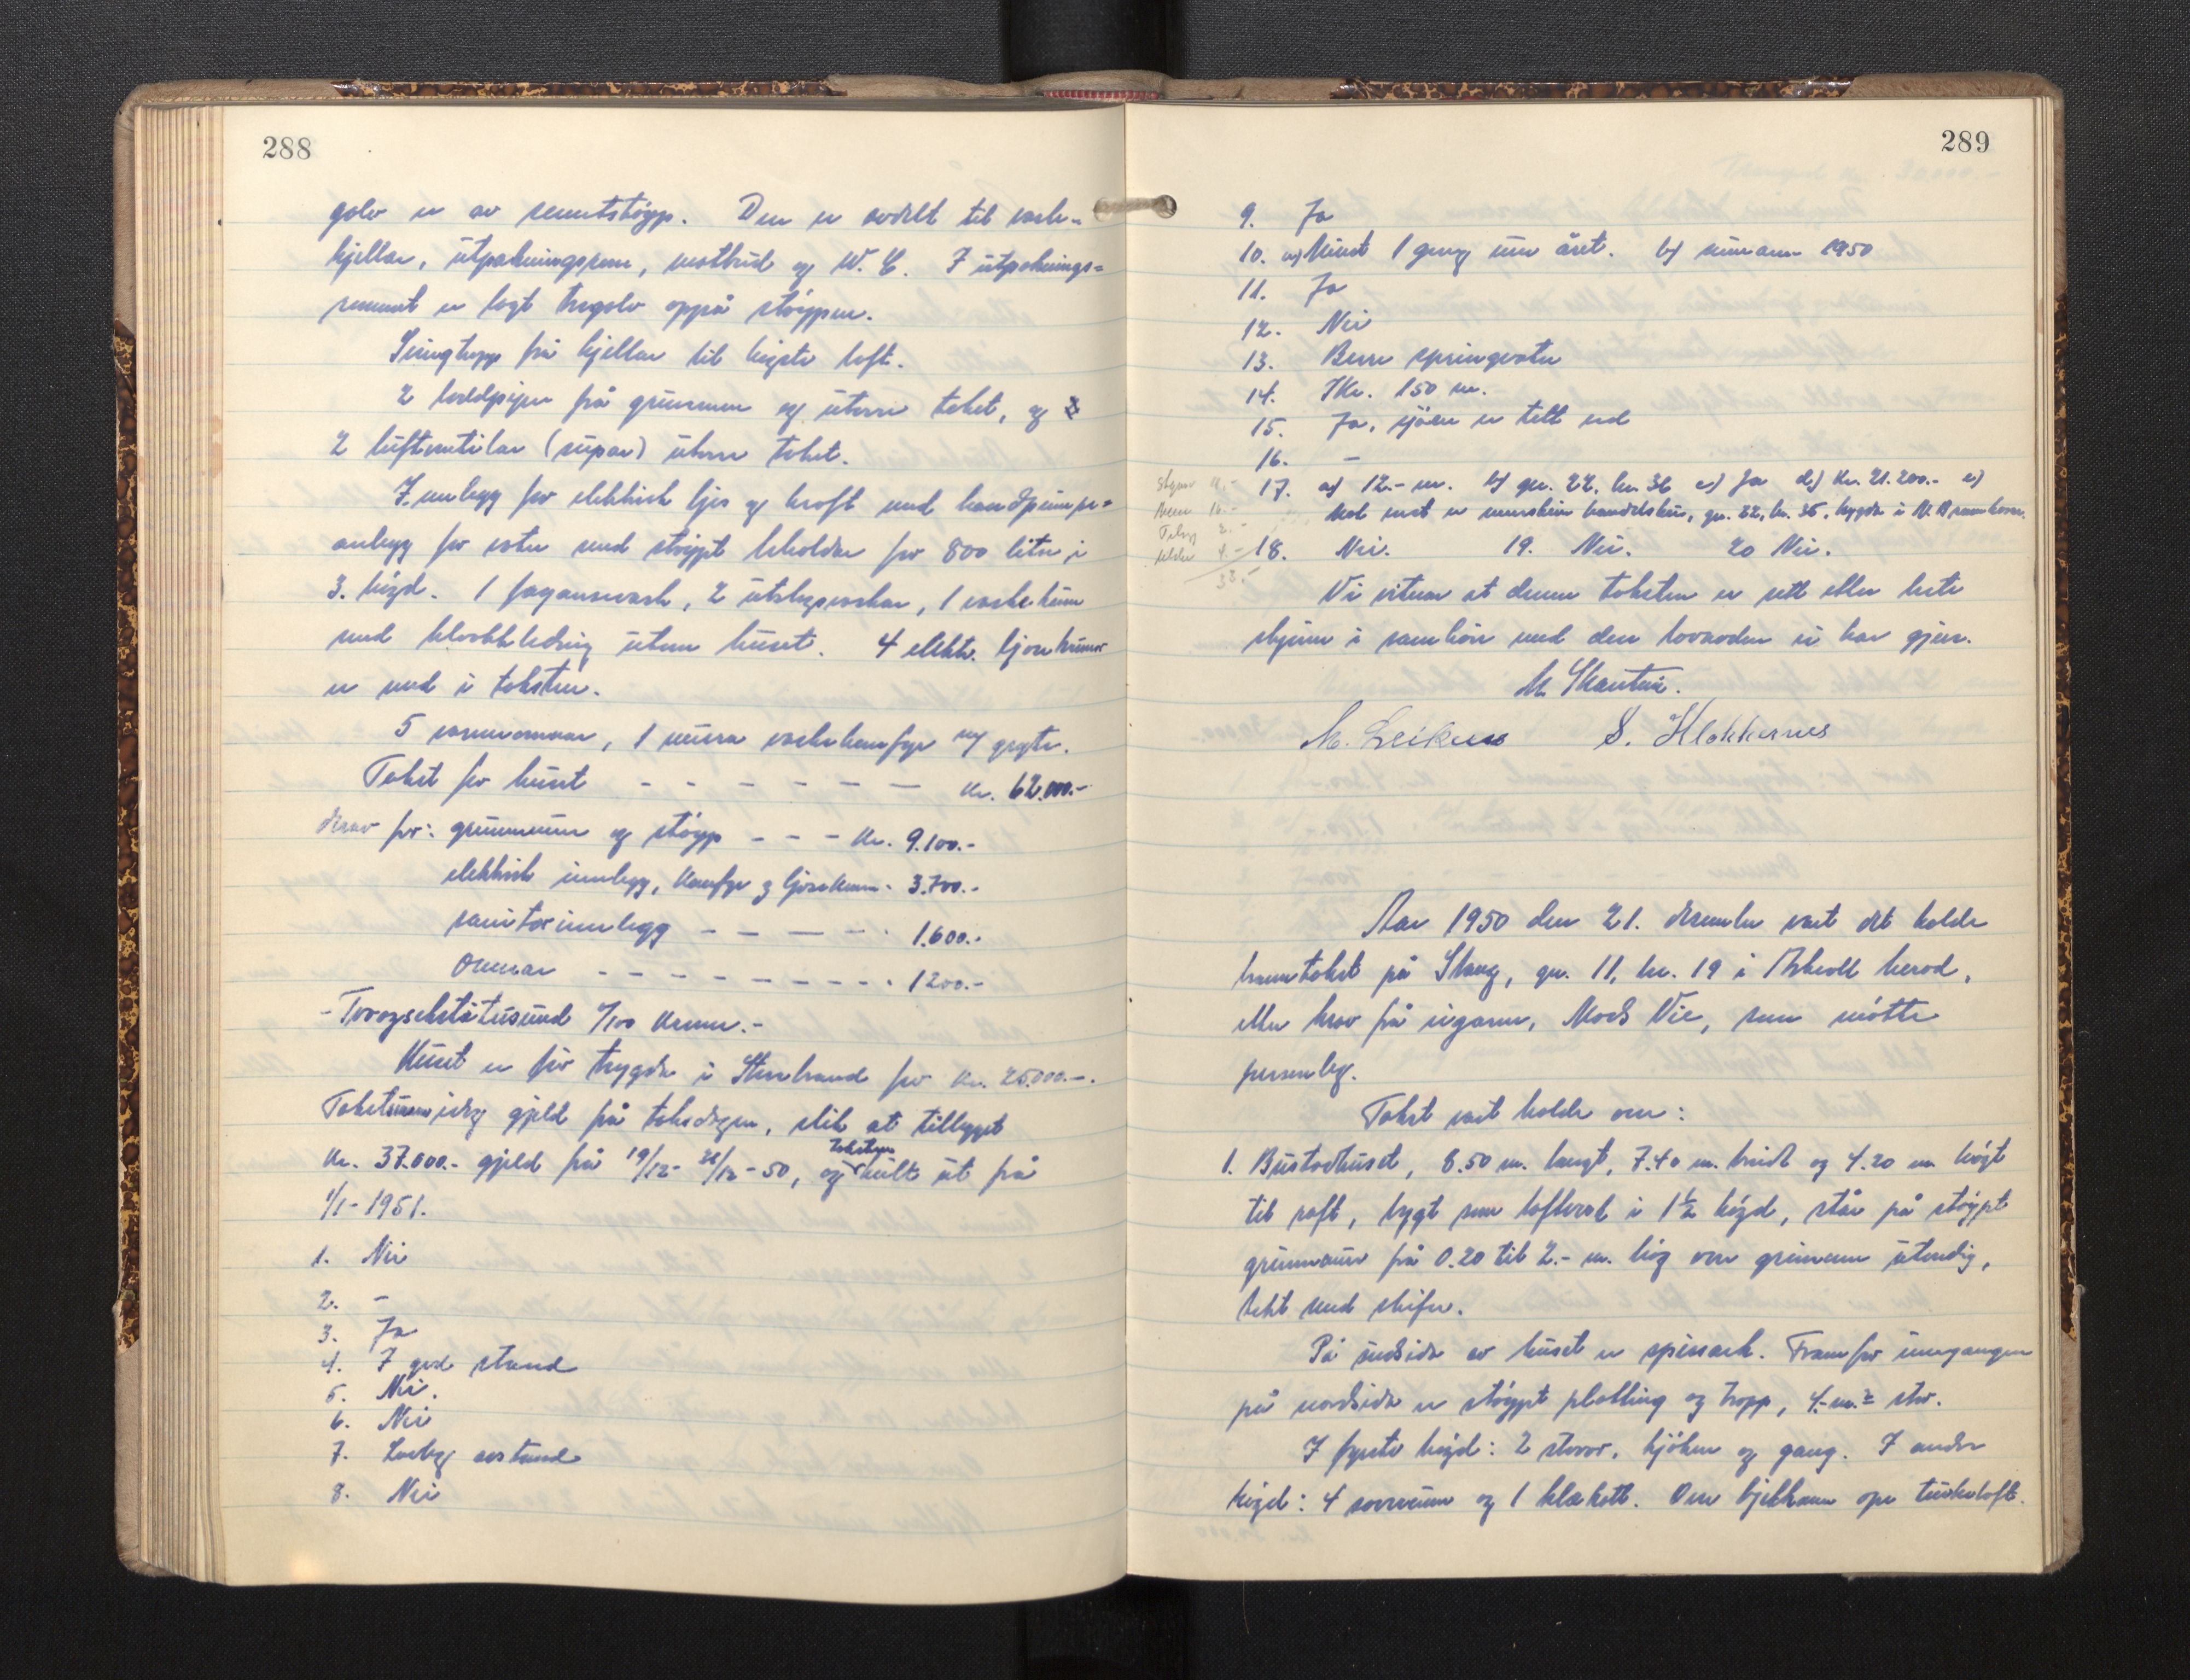 288
golv er av sementstøyp. Den er avdelt til vaske-
kjellar, utpakningsrom, matbud og W.C. I utpaknings-
rommet er lagt tregolv oppå støypen.
Svingtropp frå kjellar til høgste loft.
2 kvaldpipor frå grunnen og utover taket, og
2 luftventilar (supar) utover taket.
Innlegg for elektrisk ljos og kraft med handpumpe-
anlegg for vatn med støypt behaldar for 800 liter i
3. høgd. 1 fayansevask, 2 utslagsvaskar, 1 vaskekum
med kloakkledning utom huset. 4 elektr. ljoskrunor
er med i taksten.
5 vanleg omnar, 1 mura vaskekamfyr m/ gryte.
Takst for huset - - - - - - - kr. 62.000.-
derav for: grunnmur og støyp - - - kr. 9.100.-
elektrisk innlegg, kamfyr og ljoskrun. - 3.700.-
sanitærinnlegg - - - - - 1.600.-
Omnar - - - - - - - - - 1200.-
- Toogsekstitusund 0/100 kroner.-
Huset er før trygda i Storebrand for kr. 25.000.-.
gjeld frå taksdagen, slik at tillegget
kr. 37.000.- gjeld frå 19/12- 31/12-50, og taksten heilt ut frå
1/1-1951.
1. Nei
2. -
3. Ja
4. I god stand
5. Nei.
6. Nei
7. Lovleg avstand
8. Nei
289
9. Ja
10. a) Minst 1 gong um året. b) sumaren 1950
11. Ja
12. Nei
13. Berre springvatn
14. Ikr. 150 m.
15. Ja, sjøen er tett ved
16. -
17. a) 12.- m. b) gnr. 22, bnr. 36 c) Ja d) kr. 21.200.- e)
Mot vest er handelshus, gnr. 22, bnr. 35, trygda i N. Brannkasse.
18. Nei. 19. Nei. 20 Nei.
Vi vitnar at denne taksten er sett etter beste
skjøn i samhøve med den lovnaden vi har gjeve.
M. Skartun.
M. Leiknes S. Klokkernes
Aar 1950 den 21. desember vart det halde
branntakst på Skaug, gnr. 11, bnr. 19 i Askvoll herad,
etter krav frå eigaren, Mads Vie, som møtte
personleg.
Takst vart halde over:
1. Bustadhuset, 8.50 m. langt, 7.40 m. breidt og 4.20 m høgt
til raft, bygt som loftverk i 1½ høgd, står på støypt
grunnmur frå 0.20 til 2.- m. høg over grunnen utvendig,
tekt med skifer.
På sudsida av huset er spissark. Framfor inngangen
på nordsida er støypt platting og tropp, 4.- m.² stor.
I fyrste høgd: 2 stover, kjøken og gang. I andre
høgd: 4 soverum og 1 klekott. Over bjelkane ope turkeloft.